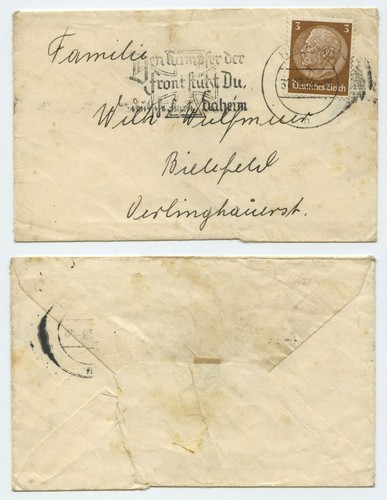 Familie
Den Kämpfer der
Front stützt Du,
daheim
3 3
Deutsches Reich
Wilh. Wulfmeier
Bielefeld
Oerlinghauerst.